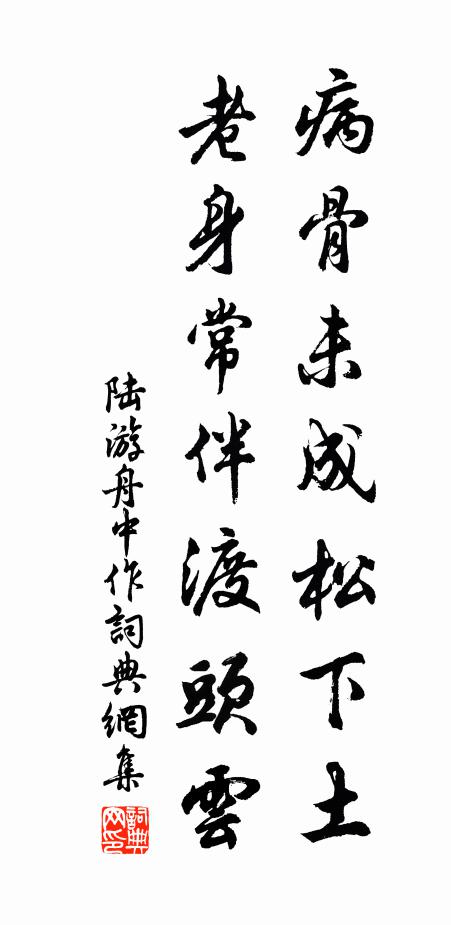 病骨未成松下土
老身常伴渡頭雲
陆游舟中作詞典網集
詞典网印